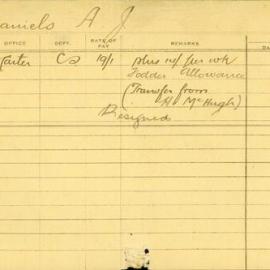 aniels A J
OFFICE DEPT. RATE OF PAY REMARKS DA
Carter Cs 19/1 plus 10/- per wk
Fodder Allowance
(Transfer from
H McHugh)
Resigned